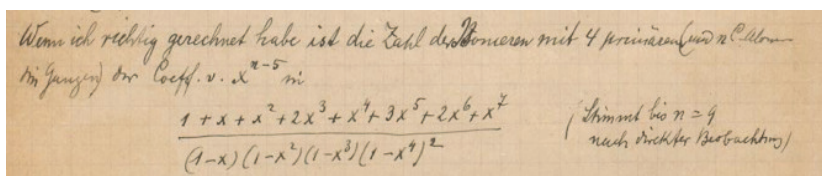 Wenn ich richtig gerechnet habe ist die Zahl der Isomeren mit 4 primären (und n C-Atomen
im Ganzen) der Coeff. v. x^{n-5} in
1 + x + x^2 + 2x^3 + x^4 + 3x^5 + 2x^6 + x^7
(Stimmt bis n = 9
(1-x)(1-x^2)(1-x^3)(1-x^4)^2
nach direkter Beobachtung)